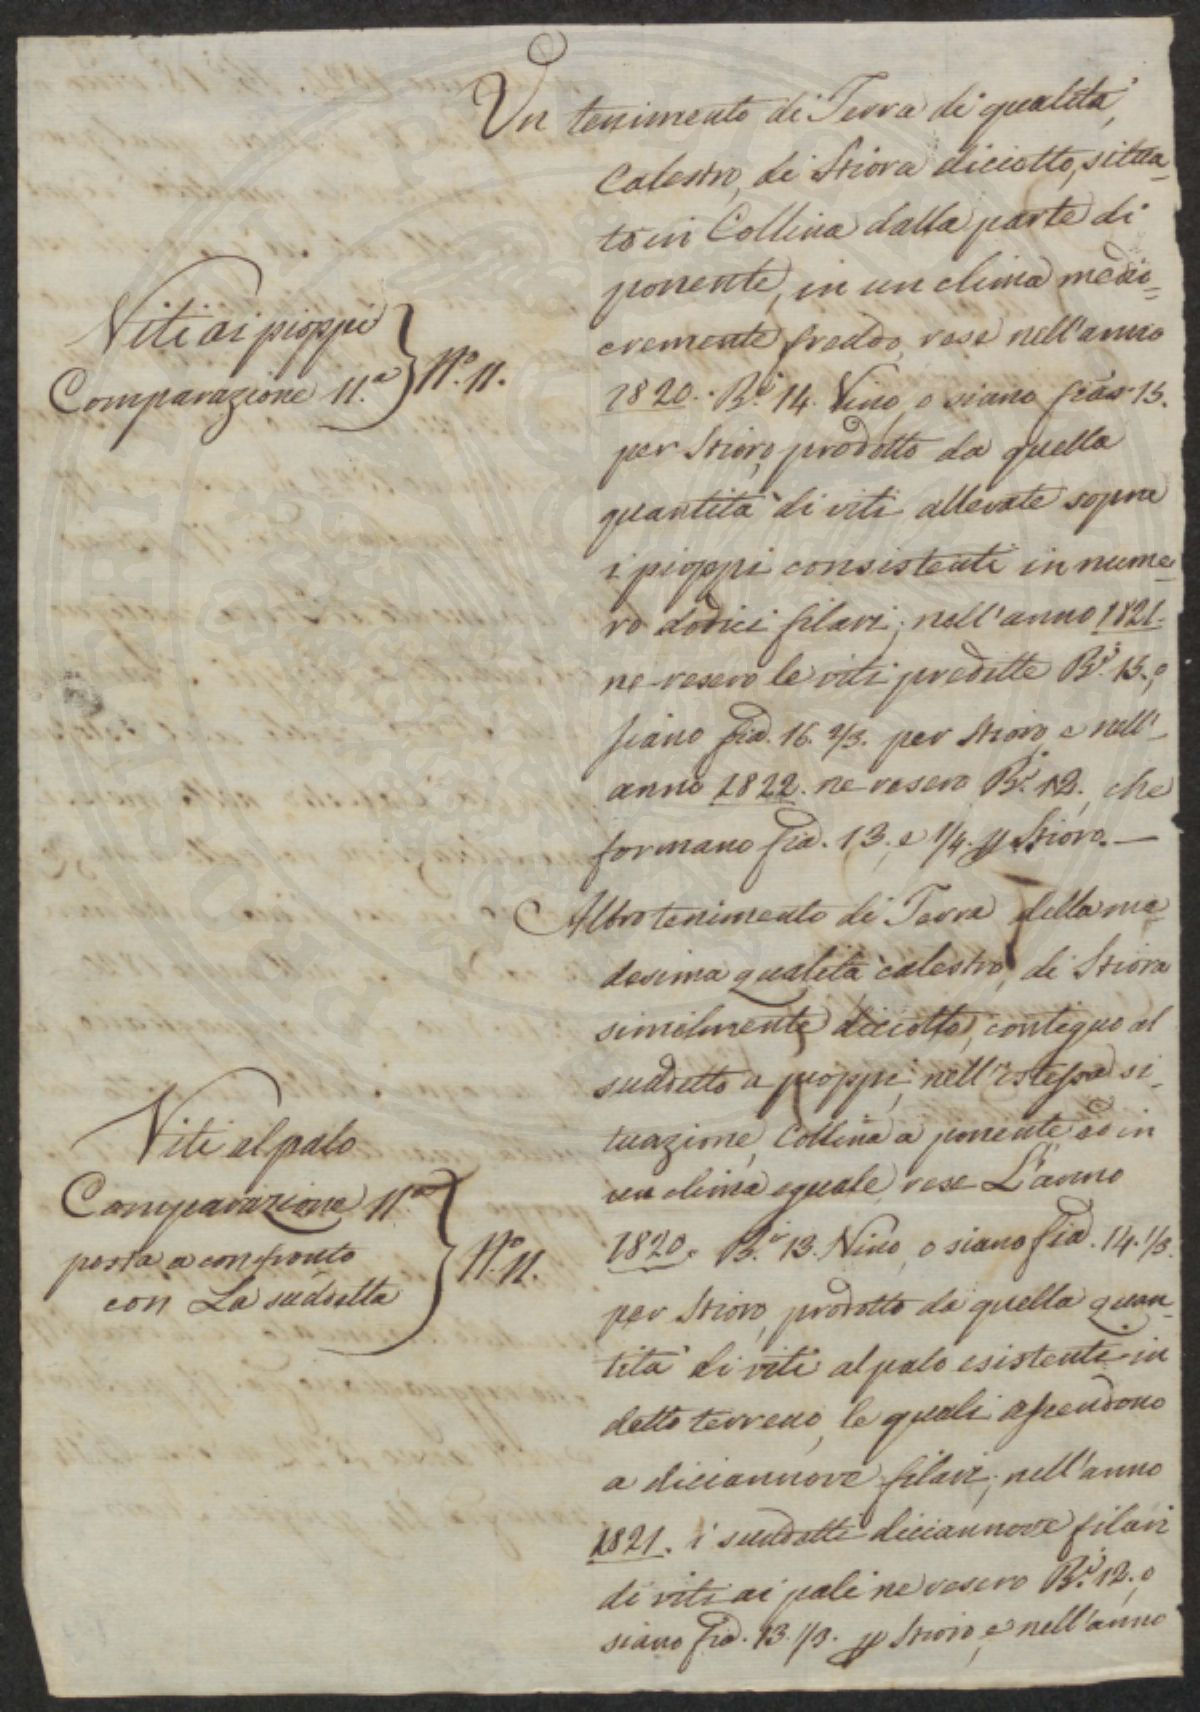 Un tenimento di Terra di qualità
Calestro, di Stiora diciotto, situa-
to in Collina dalla parte di
ponente, in un clima medio-
cremente freddo, rese nell'anno
1820. Bi. 14. Vino, o siano fias. 15.
per Stioro, prodotto da quella
quantità di viti allevate sopra
i pioppi consistenti in nume-
ro dodici filari; nell'anno 1821.
ne resero le viti predette Bi. 15., o
siano fia. 16. 2/3. per Stioro, e nell'
anno 1822. ne resero Bi. 12., che
formano fia. 13. e 1/4. p Stioro.—
Viti ai pioppi
Comparazione 11.a
No. 11.
Altro tenimento di Terra della me-
desima qualità calestro, di Stiora
similmente diciotto, contiguo al
suddetto a pioppi, nell'istessa si-
tuazione, Collina a ponente ed in
un clima eguale, rese L'anno
1820. Bi. 13. Vino, o siano fia. 14. 1/3.
per Stioro, prodotto da quella quan-
tità di viti al palo esistenti in
detto terreno, le quali ascendono
a diciannove filari; nell'anno
1821. i suddetti diciannove filari
di viti ai pali ne resero Bi. 12., o
siano fia. 13. 1/3. p Stioro, e nell'anno
Viti al palo
Comparazione 11.a
posta a confronto
con La suddetta
No. 11.